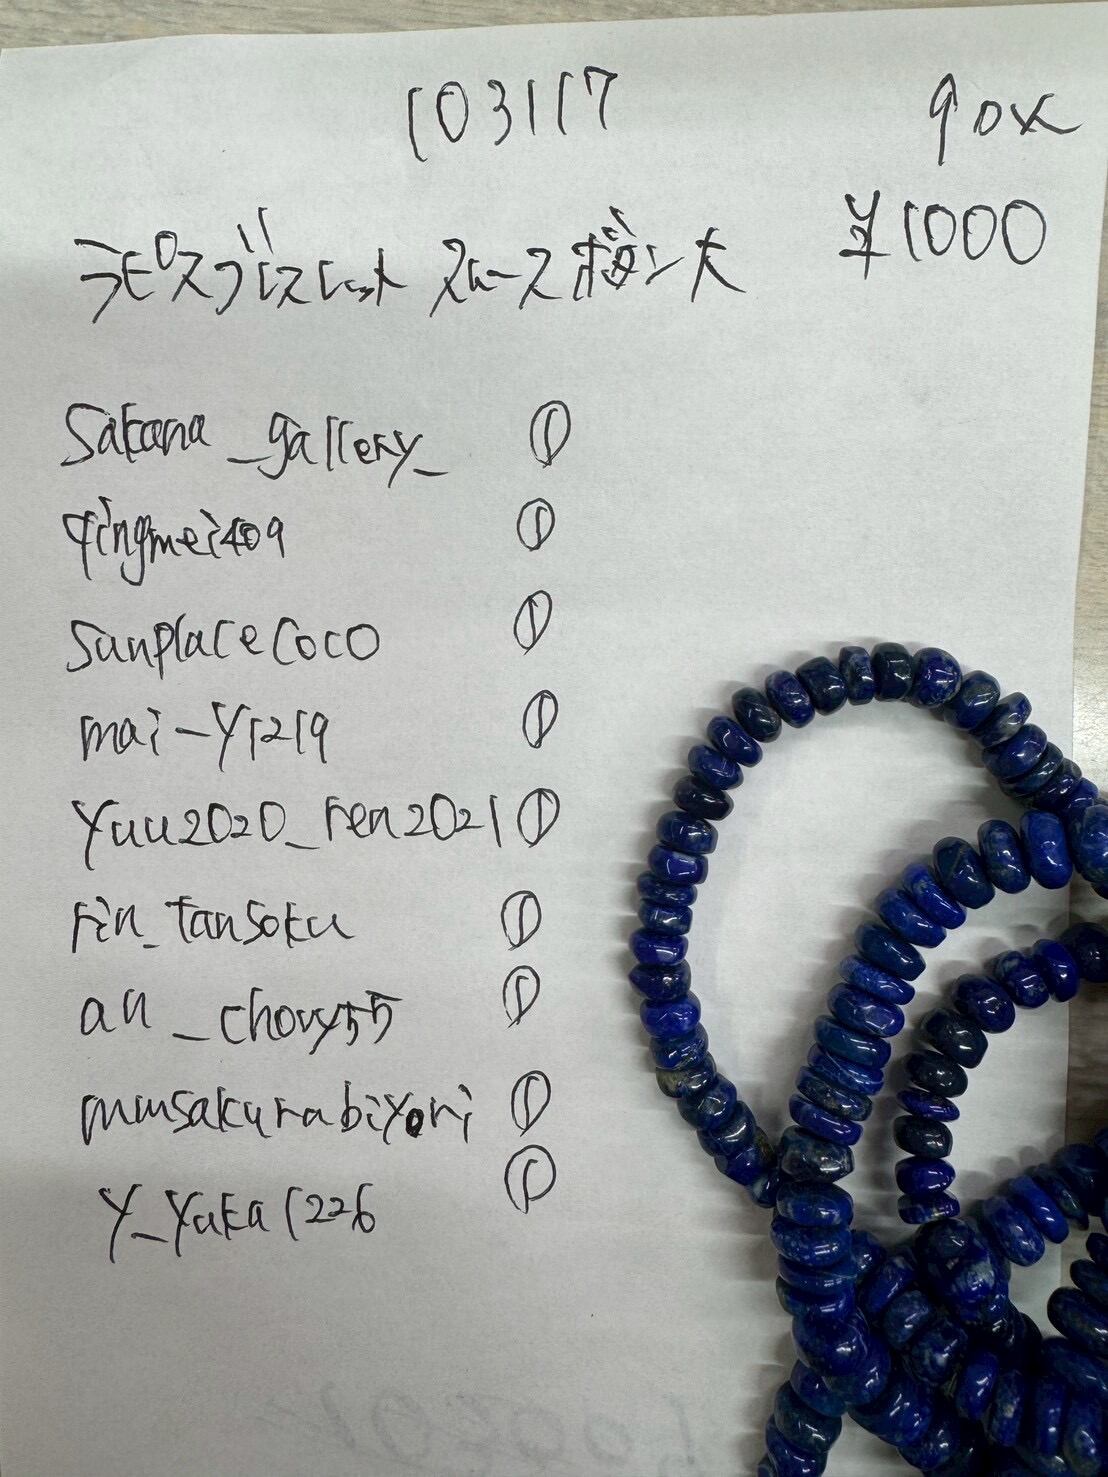 103117
90x
¥1000
ラピスブレスレット スムースボタン大
Sakana_gallery_ ①
qingmei409 ①
sunplacecoco ①
mai-y1219 ①
yuu2020_ren2021 ①
rin_tansoku ①
au_chovy55 ①
mmsakurabiyori ①
y_yuka1226 ①